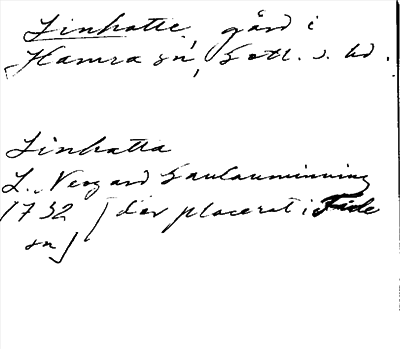 Linhatte, gård i
Hamra sn, Gotl. s. hd.
Linhatta
L. Neogard Gaulauminning
1732 [där placerat i Fide
sn]